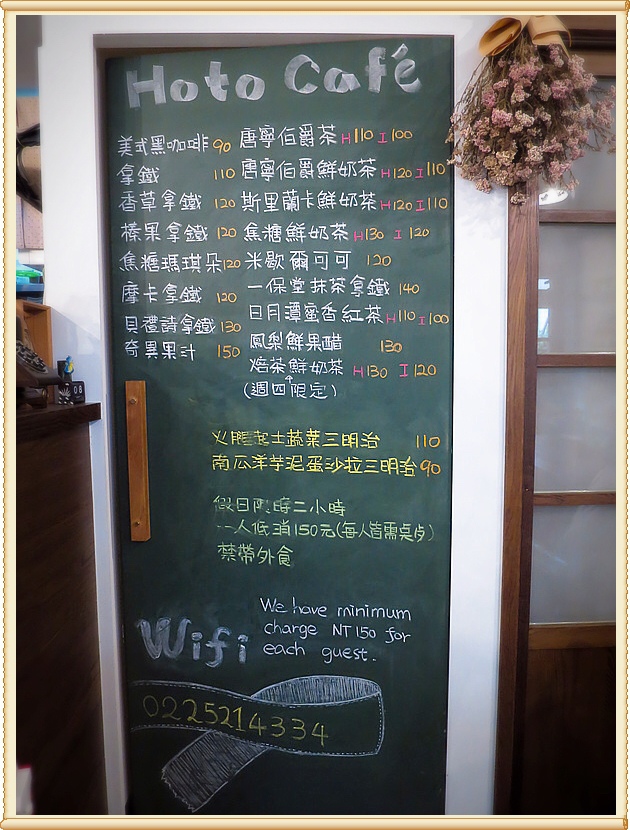 Hoto Café
美式黑咖啡 90
拿鐵 110
香草拿鐵 120
榛果拿鐵 120
焦糖瑪琪朵 120
摩卡拿鐵 120
貝禮詩拿鐵 130
奇異果汁 150
唐寧伯爵茶 H110 I100
唐寧伯爵鮮奶茶 H120 I110
斯里蘭卡鮮奶茶 H120 I110
焦糖鮮奶茶 H130 I120
米歇爾可可 120
一保堂抹茶拿鐵 140
日月潭蜜香紅茶 H110 I100
鳳梨鮮果醋 130
焙茶鮮奶茶 H130 I120
(週四限定)
火腿起士蔬菜三明治 110
南瓜洋芋泥蛋沙拉三明治 90
假日限時二小時
一人低消150元(每人皆需桌卡)
禁帶外食
We have minimum
charge NT 150 for
each guest.
Wifi
0225214334
08